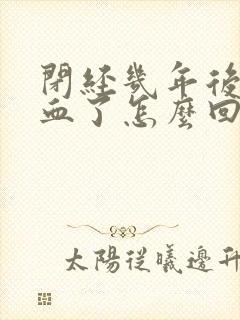 閉經幾年後
血了怎麼回
太陽從曦邊升